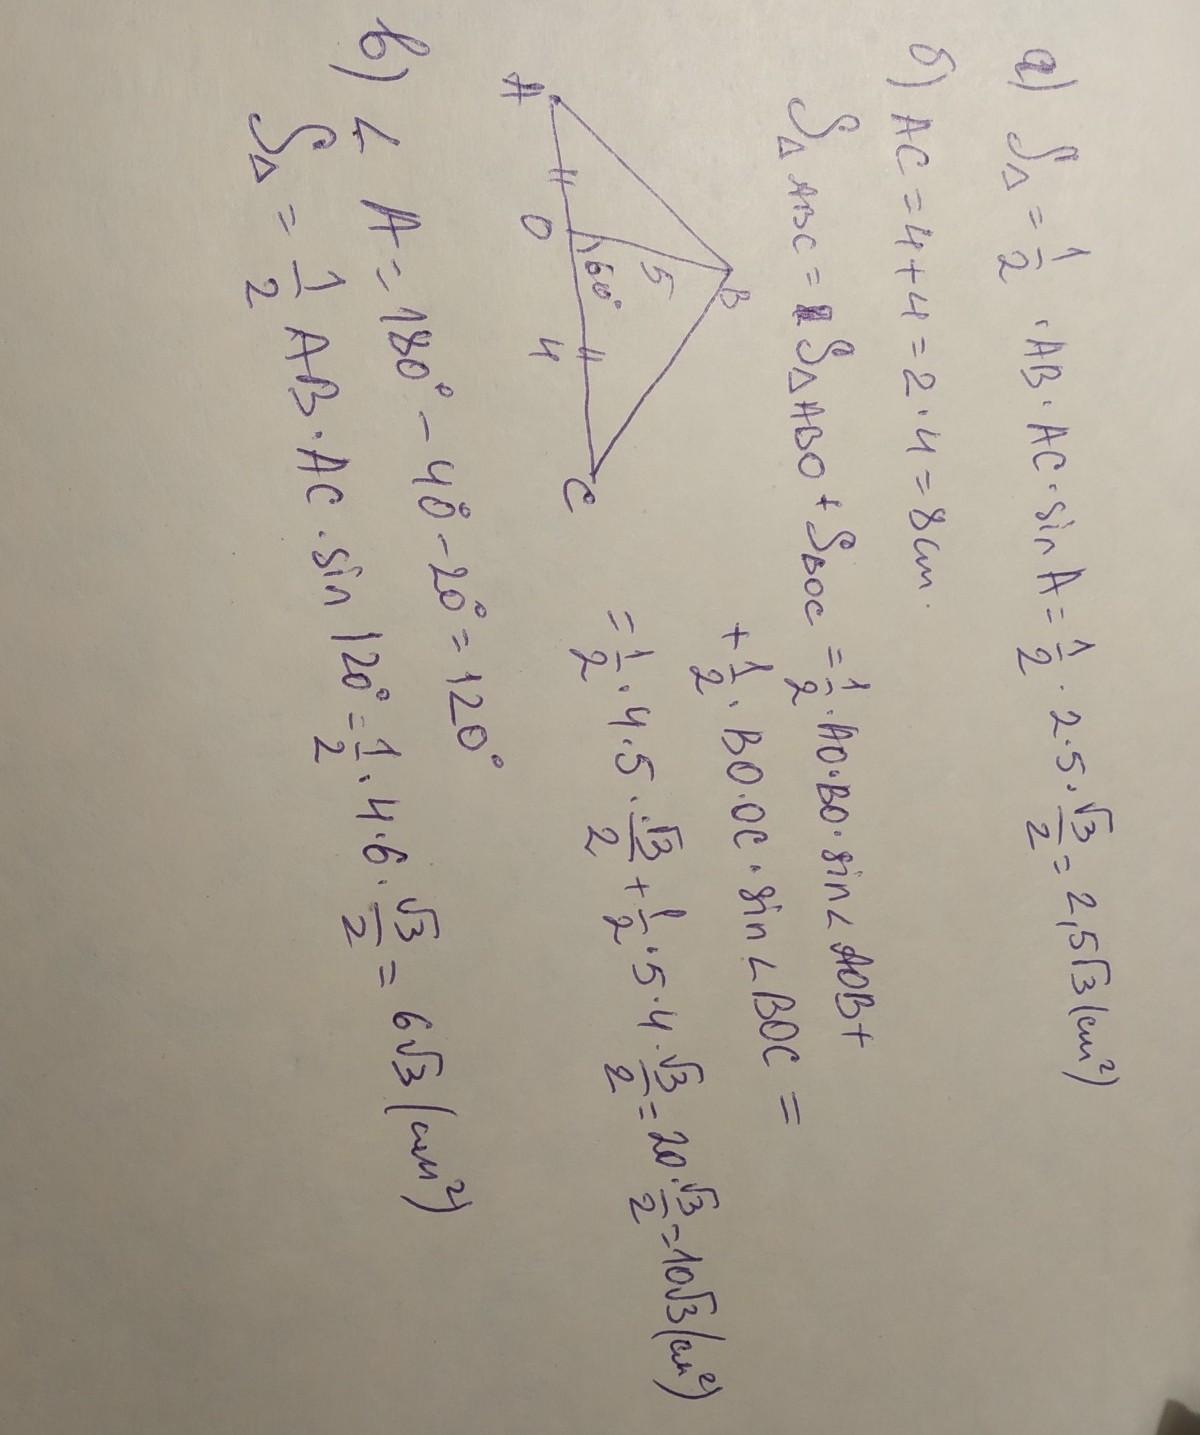 а) S△ = 1/2 · AB · AC · sin A = 1/2 · 2 · 5 · √3/2 = 2,5√3 (см²)
б) AC = 4 + 4 = 2 · 4 = 8 см.
S△ABC = S△ABO + SBOC = 1/2 · AO · BO · sin ∠AOB +
+ 1/2 · BO · OC · sin ∠BOC =
= 1/2 · 4 · 5 · √3/2 + 1/2 · 5 · 4 · √3/2 = 20 · √3/2 = 10√3 (см²)
B
5
60°
A
O
4
C
в) ∠ A = 180° - 40° - 20° = 120°
S△ = 1/2 AB · AC · sin 120° = 1/2 · 4 · 6 · √3/2 = 6√3 (см²)